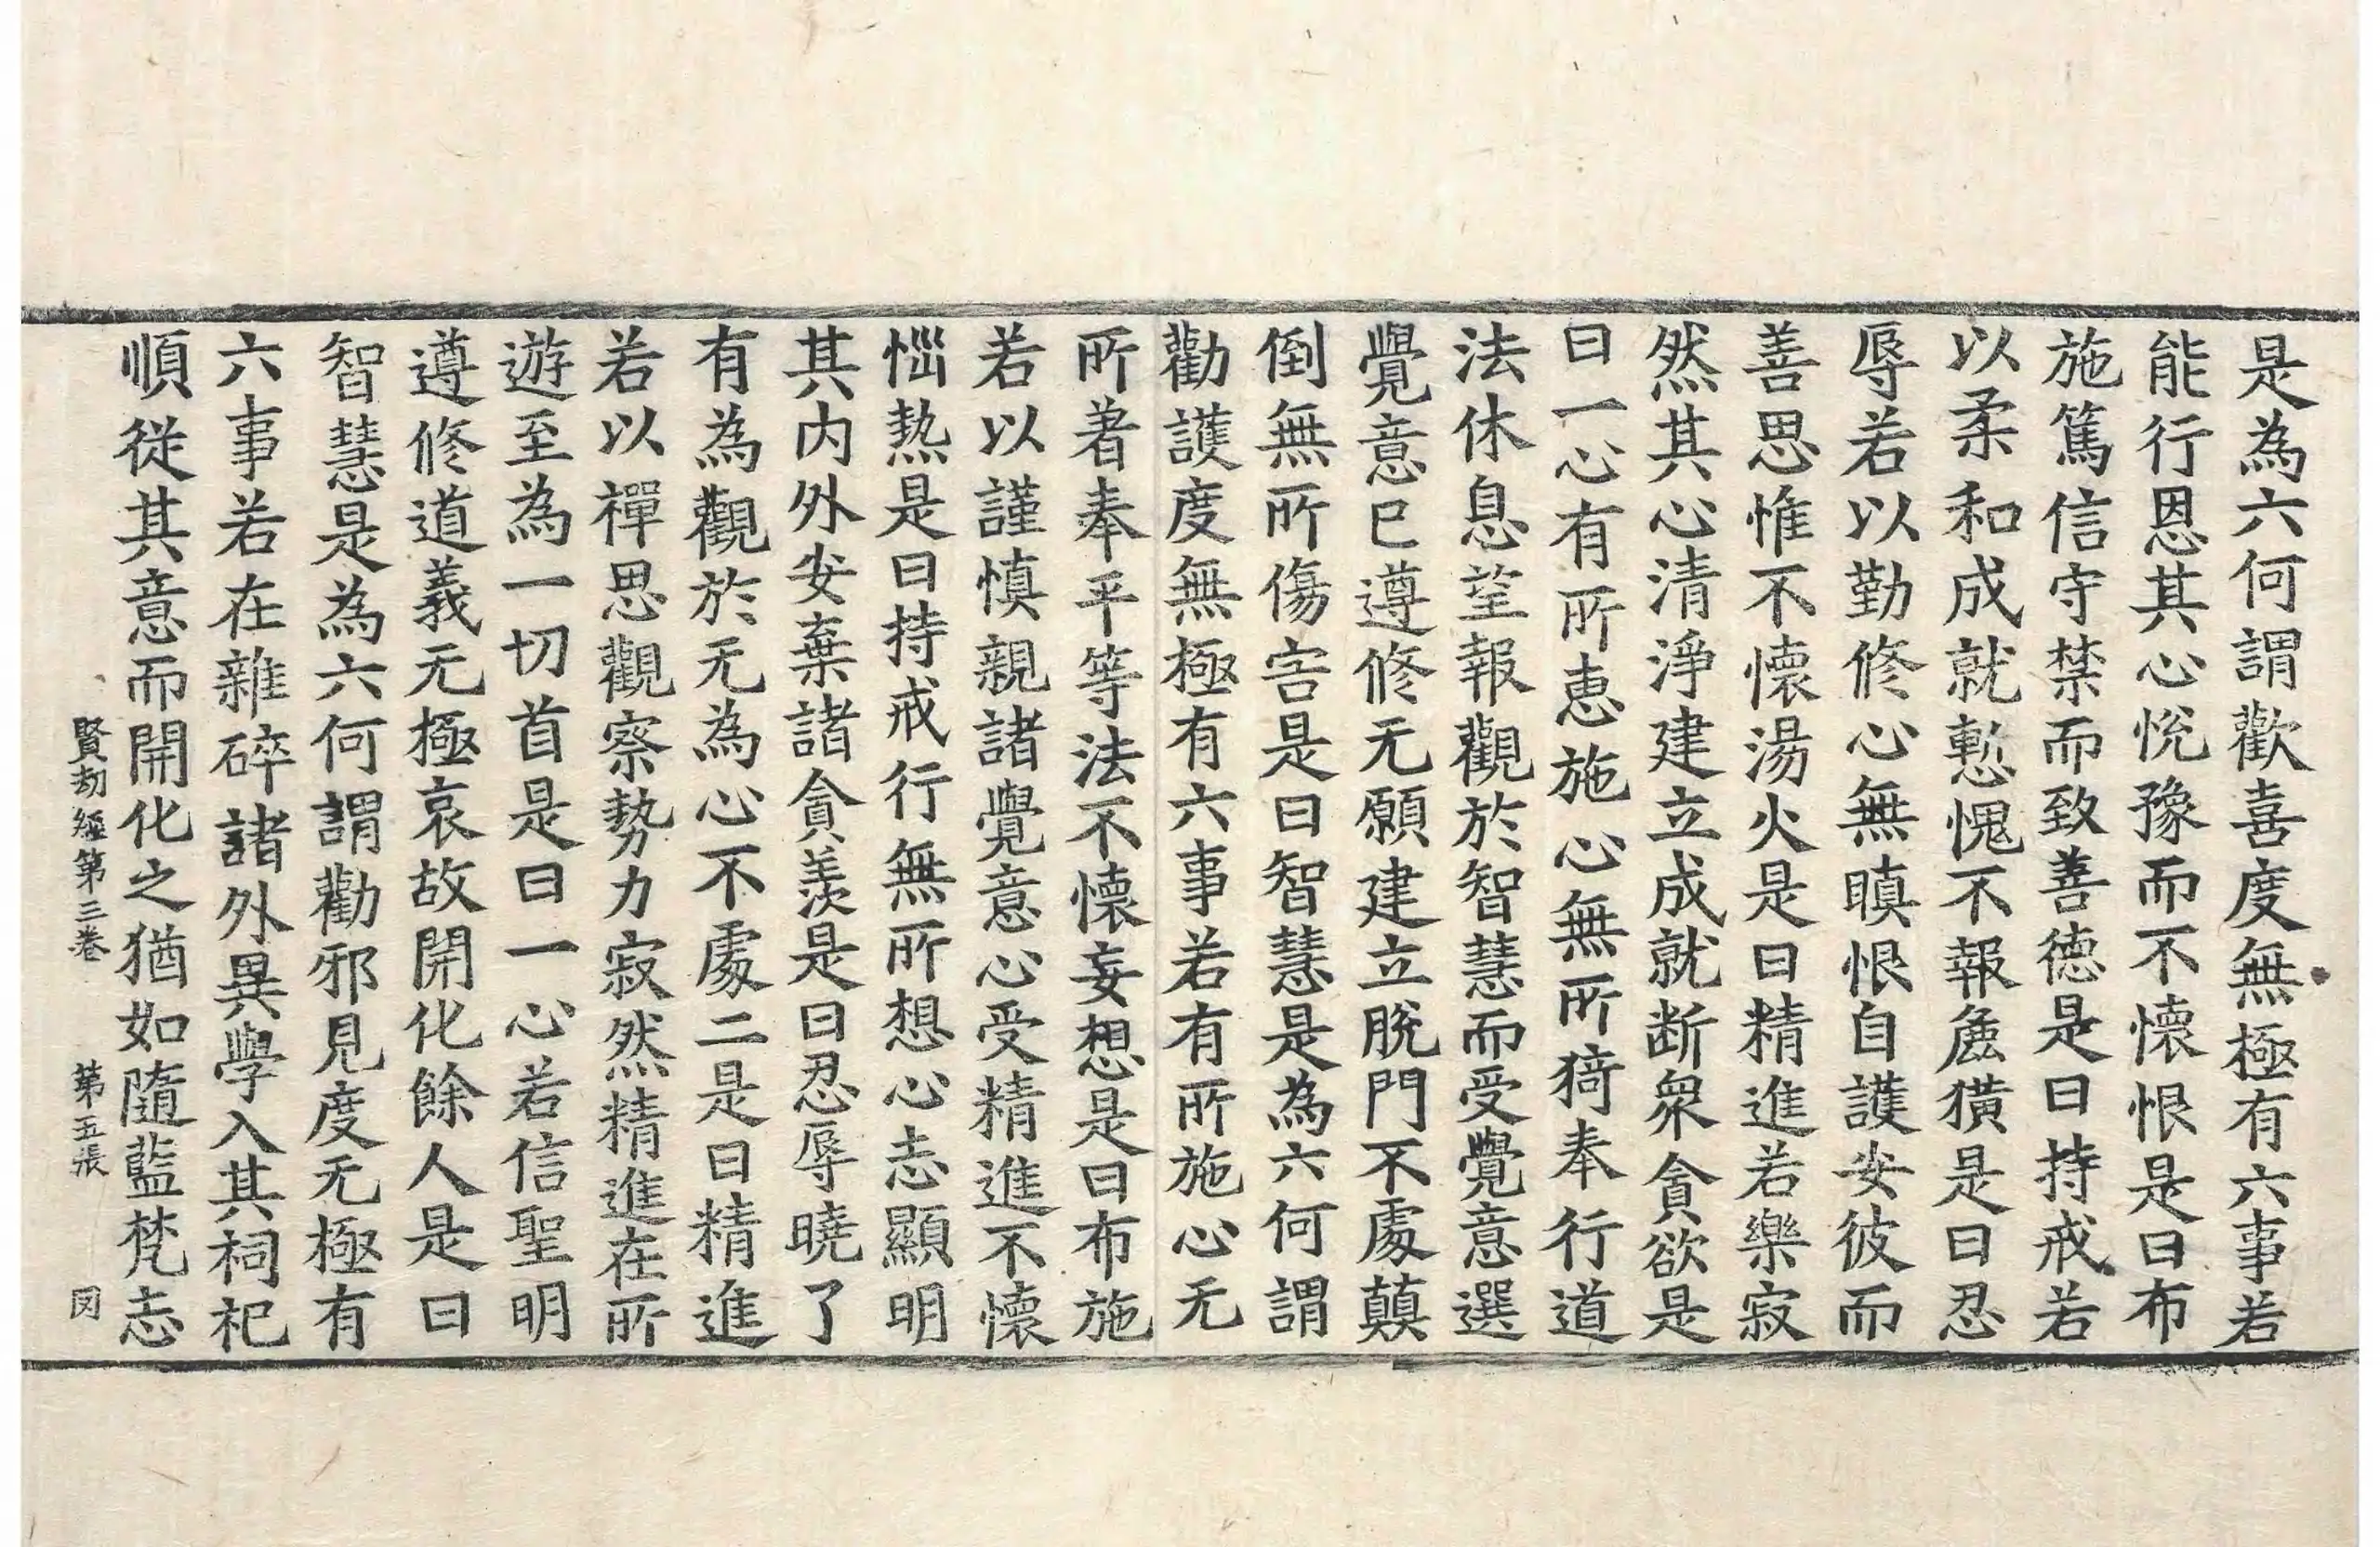 是為六何謂歡喜度無極有六事若
能行恩其心悅豫而不懷恨是曰布
施篤信守禁而致善德是曰持戒若
以柔和成就慙愧不報麁獷是曰忍
辱若以勤修心無瞋恨自護安彼而
善思惟不懷湯火是曰精進若樂寂
然其心清淨建立成就断衆貪欲是
曰一心有所恵施心無所猗奉行道
法休息望報觀於智慧而受覺意選
覺意已遵修无願建立脫門不處顛
倒無所傷害是曰智慧是為六何謂
勸護度無極有六事若有所施心无
所著奉平等法不懷妄想是曰布施
若以謹慎親諸覺意心受精進不懷
惱熱是曰持戒行無所想心志顯明
其内外安棄諸貪羨是曰忍辱曉了
有為觀於无為心不處二是曰精進
若以禪思觀察勢力寂然精進在所
遊至為一切首是曰一心若信聖明
遵修道義无極哀故開化餘人是曰
智慧是為六何謂勸邪見度无極有
六事若在雜碎諸外異學入其祠祀
順從其意而開化之猶如隨藍梵志
賢劫經第三卷 第五張